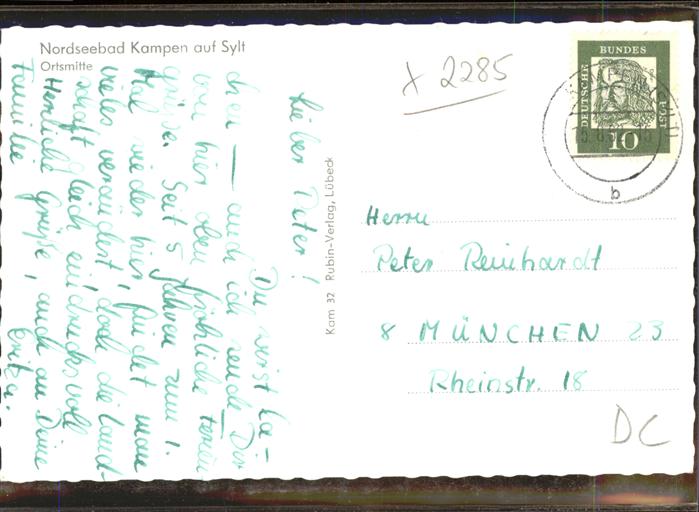 Nordseebad Kampen auf Sylt
Ortsmitte
x 2285
DEUTSCHE
BUNDES
POST
10
b
Lieber Peter!
Du wirst la-
chen — auch ich sende Dir
von hier oben fröhliche Ferien
grüße. Seit 5 Jahren zum 1.
Mal wieder hier, findet man
vieles verändert, doch die Land-
schaft gleich eindrucksvoll
Herzliche Grüße, auch an Deine
Familie
Erika.
Kam 32 Rubin-Verlag, Lübeck
Herrn
Peter Reinhardt
8 MÜNCHEN 23
Rheinstr. 18
DC